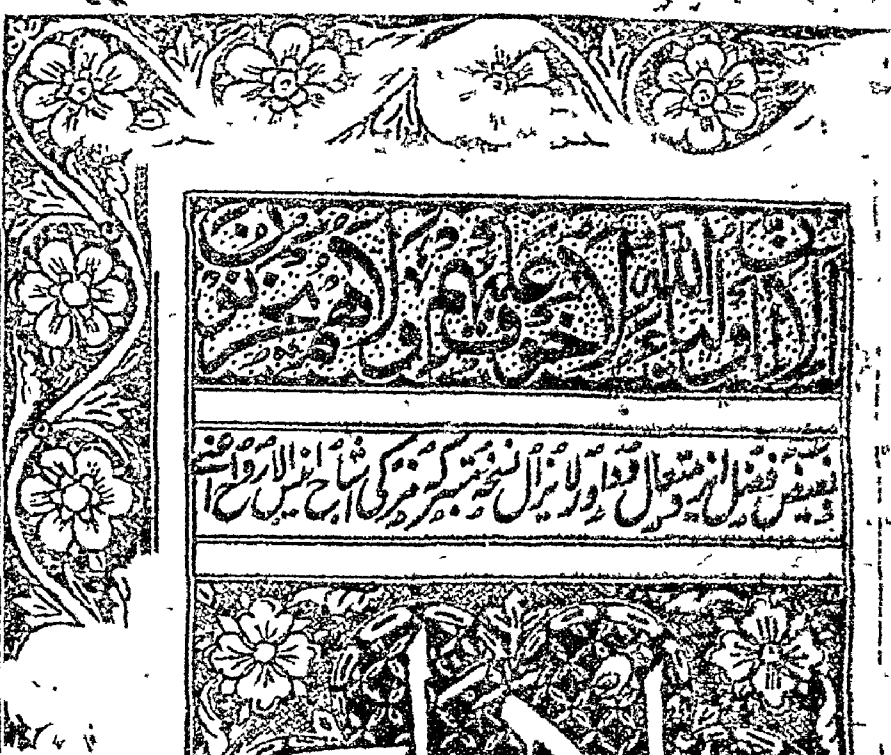 الا ان اولیاء الله لا خوف علیهم ولا هم یحزنون
بفیض فضل ایزد متعال فرد اور لا یزال نسخه متبرکه مزکی اشباح انیس الارواح